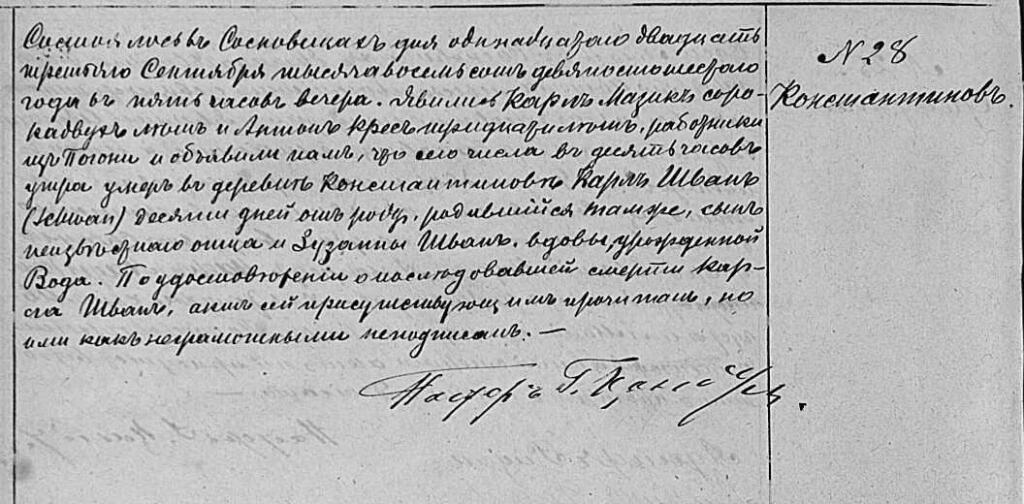 Состоялось въ Сосновицахъ дня одинадцатаго двадцать
третьяго Сентября тысяча восемьсотъ девяносто шестаго
года въ пять часовъ вечера. Явились Карлъ Мазикъ соро-
кадвухъ лѣтъ и Антонъ Кресъ тридцати лѣтъ, работники
изъ Погони и объявили намъ, что сего числа въ десять часовъ
утра умеръ въ деревнѣ Константиновѣ Карлъ Шванъ
(Schwan) десяти дней отъ роду, родившійся тамже, сынъ
неизвѣстнаго отца и Зузанны Шванъ, вдовы, урожденной
Вода. По удостовѣреніи о послѣдовавшей смерти Кар-
ла Шванъ, актъ сей присутствующимъ прочитанъ, но
ими какъ неграмотными неподписанъ. —
Пасторъ Г.
№ 28
Константиновъ.